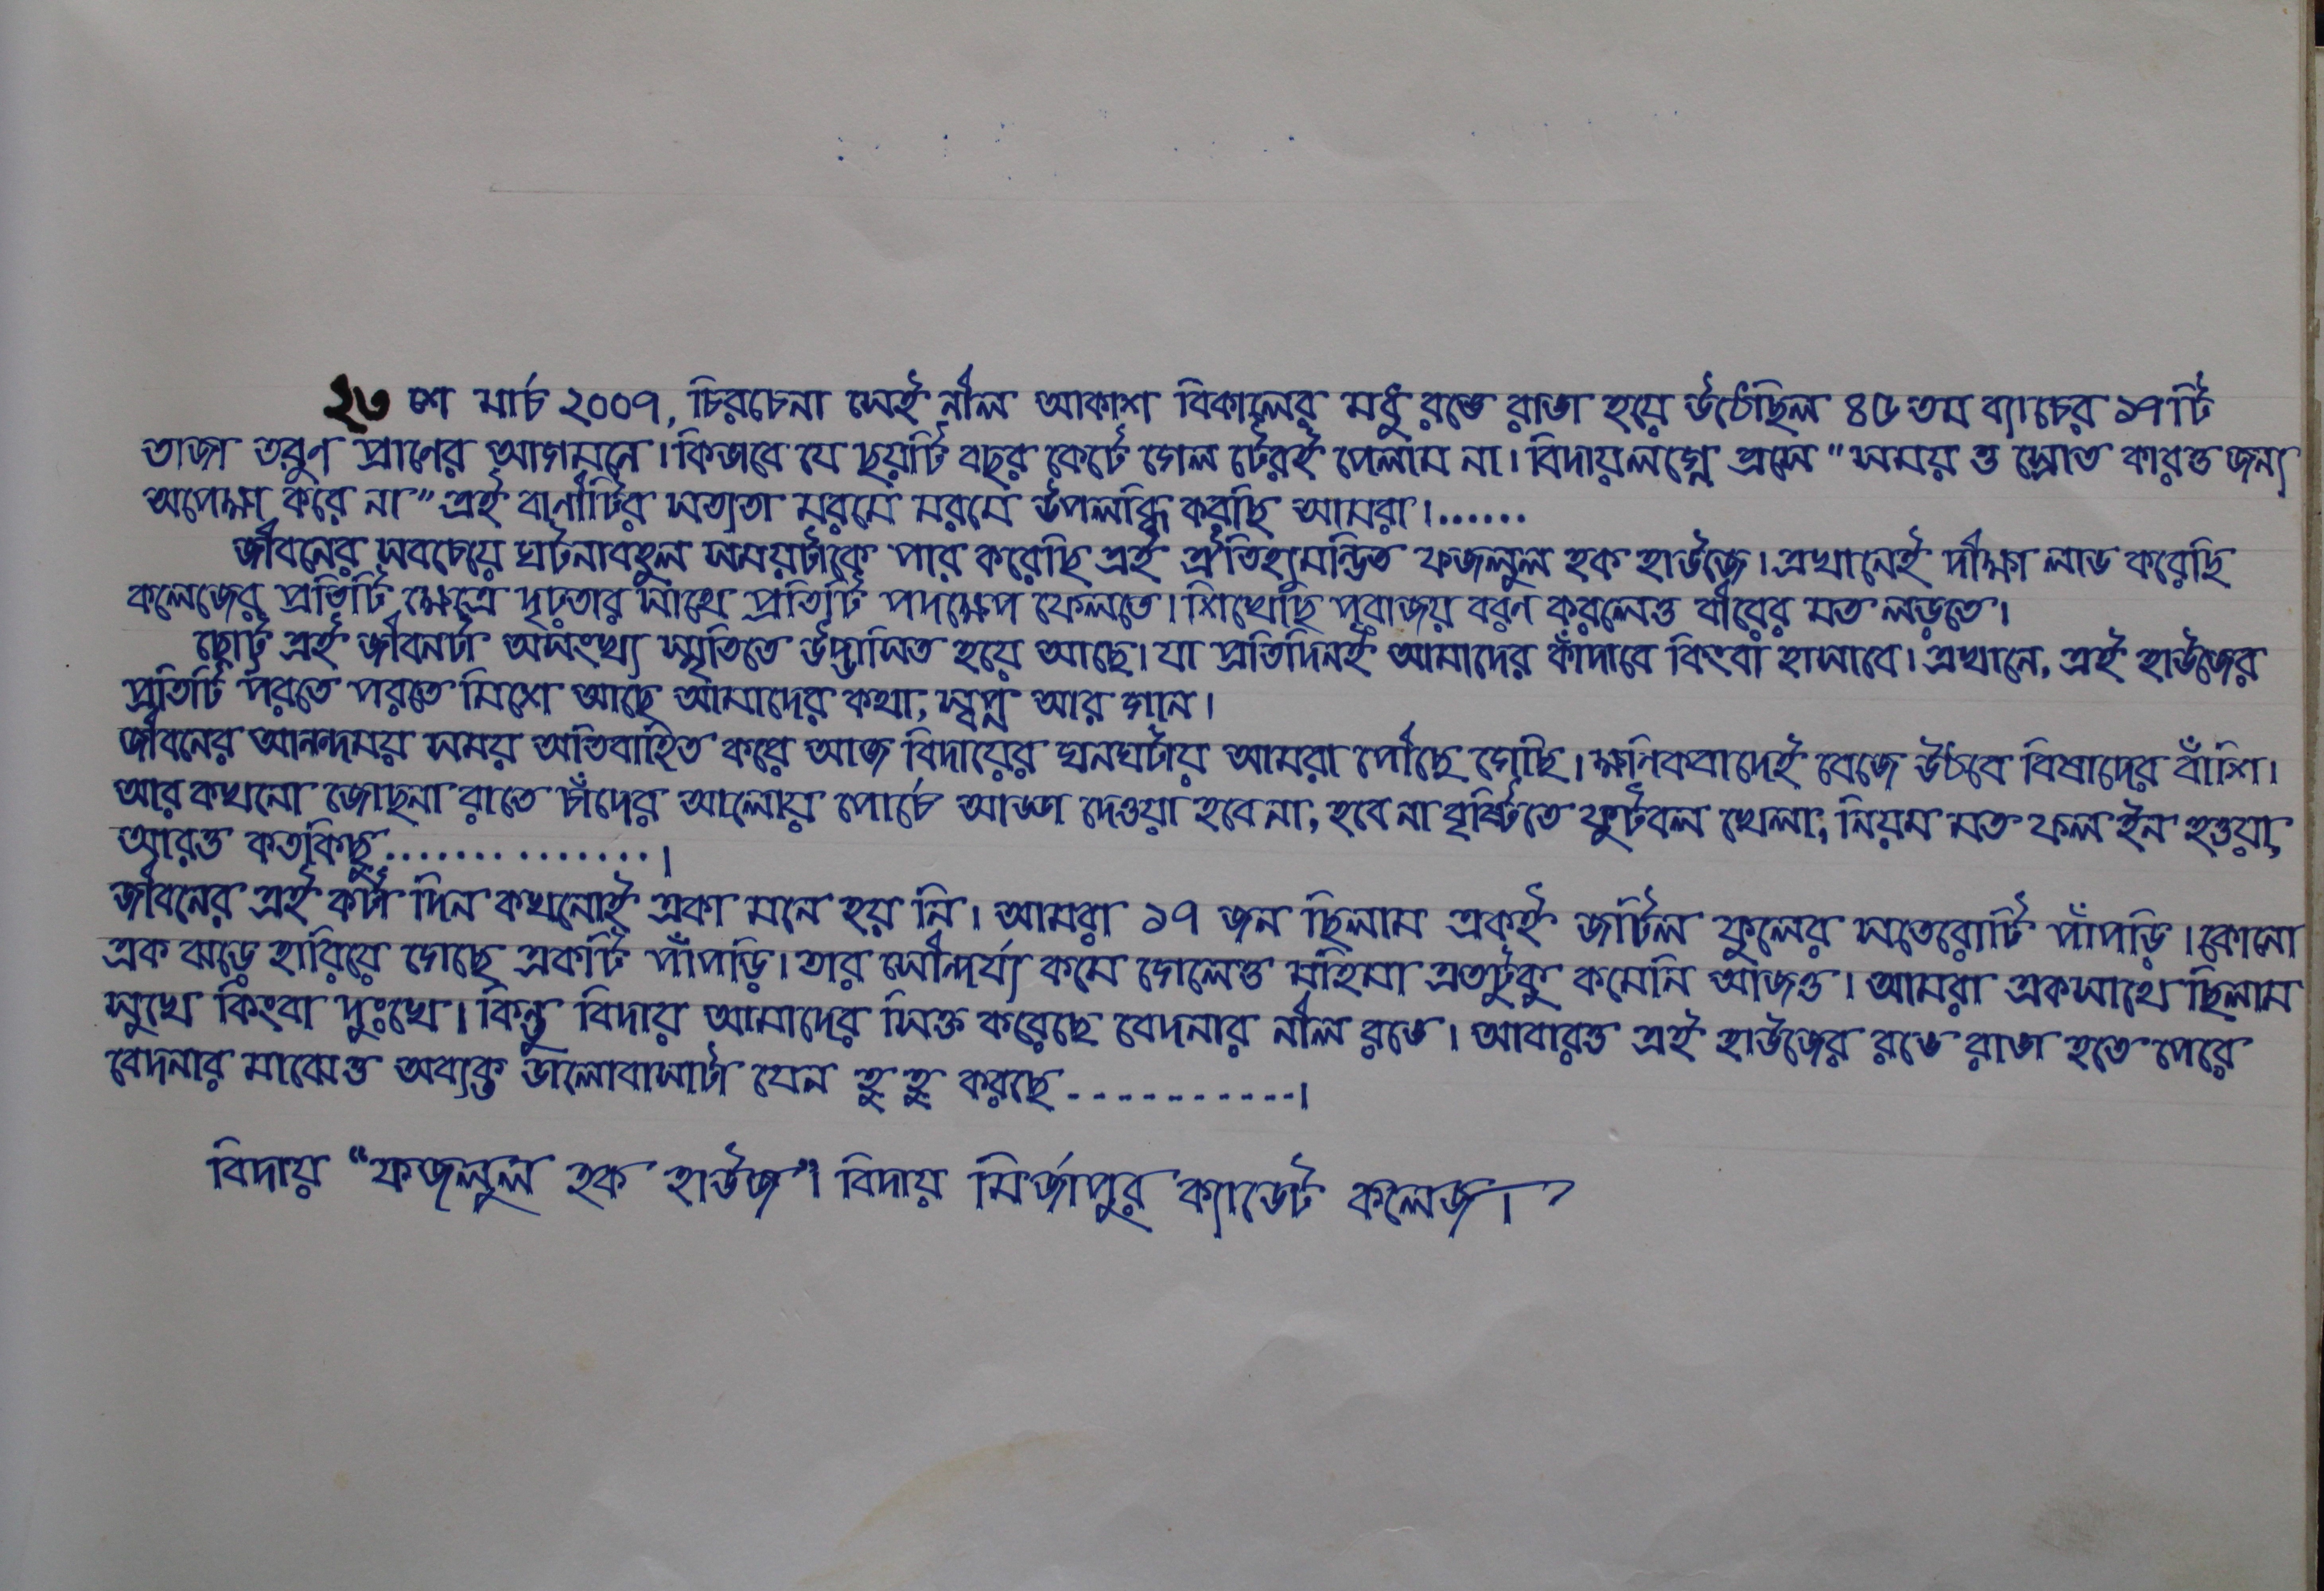 ২৩ শে মার্চ ২০০৭, চিরচেনা সেই নীল আকাশ বিকালের মধু রঙে রাঙা হয়ে উঠেছিল ৪৫ তম ব্যাচের ১৭টি
তাজা তরুণ প্রাণের আগমনে। কিভাবে যে ছয়টি বছর কেটে গেল টেরই পেলাম না। বিদায়লগ্নে এসে "সময় ও স্রোত কারও জন্য
অপেক্ষা করে না" এই বাণীটির সত্যতা মরমে মরমে উপলব্ধি করছি আমরা।......
জীবনের সবচেয়ে ঘটনাবহুল সময়টাকে পার করেছি এই ঐতিহ্যমন্ডিত ফজলুল হক হাউজে। এখানেই দীক্ষা লাভ করেছি
কলেজের প্রতিটি ক্ষেত্রে দৃঢ়তার সাথে প্রতিটি পদক্ষেপ ফেলতে। শিখেছি পরাজয় বরণ করলেও বীরের মত লড়তে।
ছোট্ট এই জীবনটা অসংখ্য স্মৃতিতে উদ্ভাসিত হয়ে আছে। যা প্রতিদিনই আমাদের কাঁদাবে কিংবা হাসাবে। এখানে, এই হাউজের
প্রতিটি পরতে পরতে মিশে আছে আমাদের কথা, স্বপ্ন আর গান।
জীবনের আনন্দময় সময় অতিবাহিত করে আজ বিদায়ের ঘনঘটায় আমরা পৌঁছে গেছি। ক্ষনিকবাদেই বেজে উঠবে বিষাদের বাঁশি।
আর কখনো জোছনা রাতে চাঁদের আলোয় পোর্চে আড্ডা দেওয়া হবে না, হবে না বৃষ্টিতে ফুটবল খেলা, নিয়ম মত ফল ইন হওয়া,
আরও কতকিছু...............।
জীবনের এই কটা দিন কখনোই একা মনে হয় নি। আমরা ১৭ জন ছিলাম একই জটিল ফুলের সতেরোটি পাঁপড়ি। কোনো
এক ঝড়ে হারিয়ে গেছে একটি পাঁপড়ি। তার সৌন্দর্য্য কমে গেলেও মহিমা এতটুকু কমেনি আজও। আমরা একসাথে ছিলাম
সুখে কিংবা দুঃখে। কিন্তু বিদায় আমাদের সিক্ত করেছে বেদনার নীল রঙে। আবারও এই হাউজের রঙে রাঙা হতে পেরে
বেদনার মাঝেও অব্যক্ত ভালোবাসাটা যেন হু হু করছে............।
বিদায় "ফজলুল হক হাউজ"। বিদায় মির্জাপুর ক্যাডেট কলেজ।